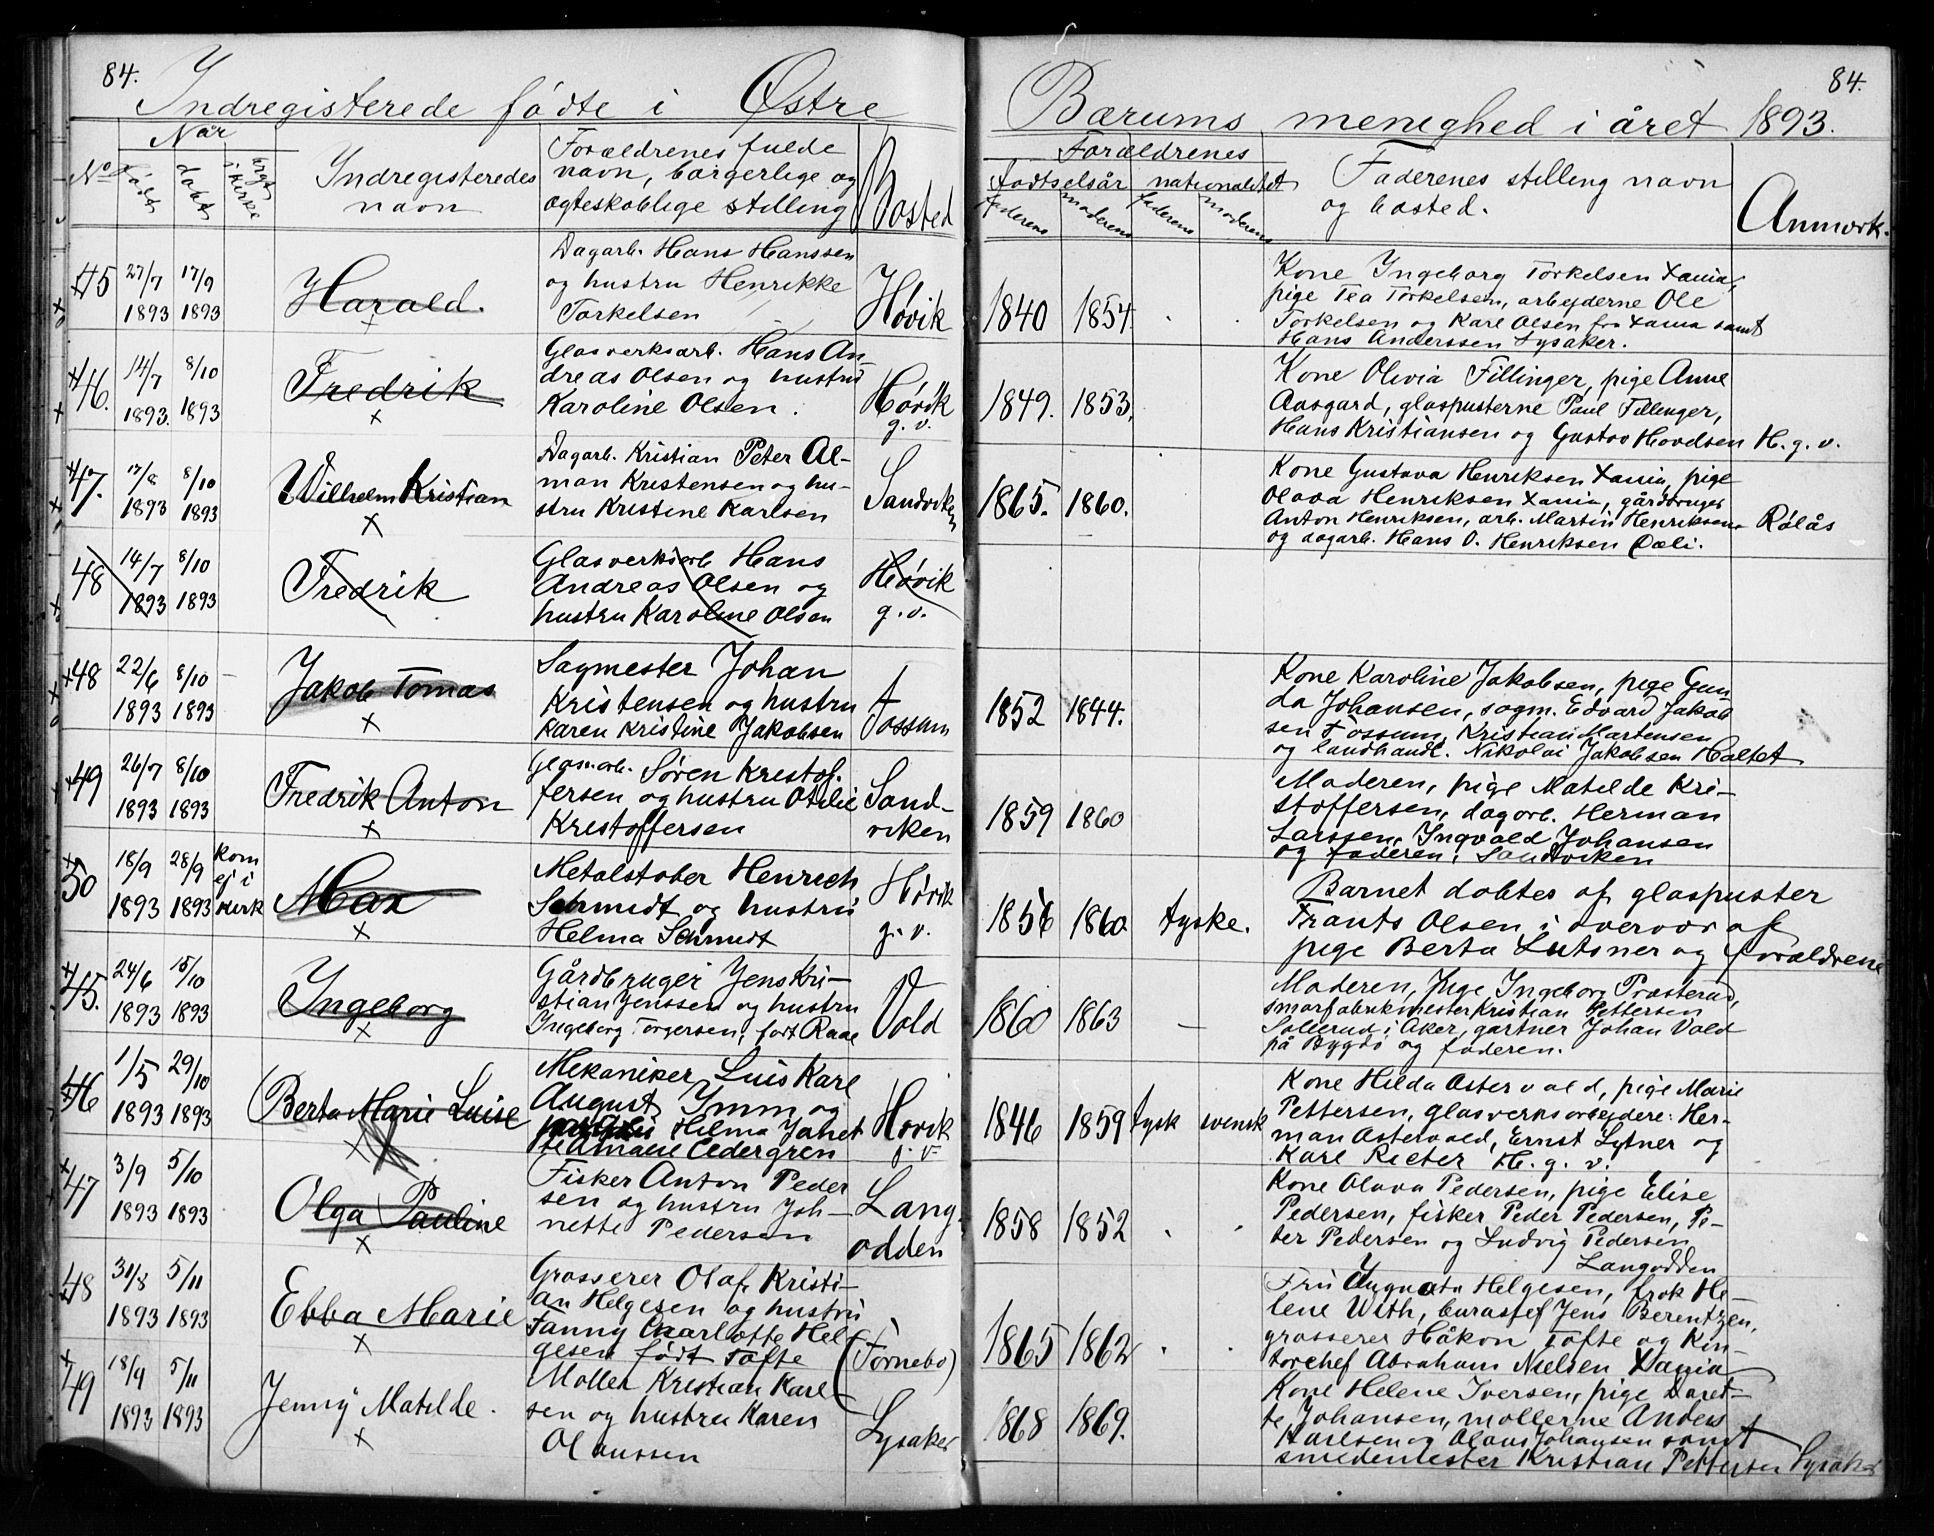 84.
84.
Indregisterede fødte i Østre Bærums menighed i året 1893.
No
Når
født
døbt
i kirke
Indregisteredes
navn
Forældrenes fulde
navn, borgerlige og
ægteskablige stilling
Bosted
Forældrenes
fødselsår
nationalitet
faderens
moderens
faderens
moderens
Faderenes stilling navn
og bosted.
Anmærk.
45
27/7 17/9
1893 1893
Harald.
Dagarb. Hans Hanssen
og hustru Henrikke
Torkelsen
Høvik
1840 1854
Kone Ingeborg Torkelsen Xania,
pige Tea Torkelsen, arbejderne Ole
Torkelsen og Karl Olsen fra Xania samt
Hans Anderssen Lysaker.
46.
14/7 8/10
1893. 1893
Fredrik
Glasverksarb. Hans An-
dreas Olsen og hustru
Karoline Olsen.
Høvik
g. v.
1849. 1853,
Kone Olivia Fillinger, pige Anne
Aasgard, glaspusterne Paul Fillinger,
Hans Kristiansen og Gustav Hovdsen H. g. v.
47.
17/8 8/10
1893 1893
Wilhelm Kristian
Dagarb. Kristian Peter Al-
man Kristensen og hu-
stru Kristine Karlsen
Sandviken
1865. 1860.
Kone Gustava Henriksen Xania, pige
Olava Henriksen Xania, gårdbruger
Anton Henriksen, arb. Martin Henriksen Rølås
og dagarb. Hans O. Henriksen Dæli.
48
14/7 8/10
1893 1893
Fredrik
Glasverksarb Hans
Andreas Olsen og
hustru Karoline Olsen
Høvik
g. v.
48
22/6 8/10 -
1893 1893
Jakob Tomas
Sagmester Johan
Kristensen og hustru
Karen Kristine Jakobsen
Fossum
1852 1844.
Kone Karoline Jakobsen, pige Gun-
da Johansen, sagm. Edvard Jakob
sen Fossum, Kristian Martensen
og landhandl. Nikolai Jakobsen Haltet
49
26/7 8/10
1893 1893
Fredrik Anton
Glasarb. Søren Krestof-
fersen og hustru Otilie
Krestoffersen
Sand-
viken
1859 1860
Moderen, pige Matilde Kri-
stoffersen, dagarb. Herman
Larssen, Ingvald Johansen
og faderen, Sandviken
50
18/9 28/9
1893 1893
kom
ej i
kirk
Max
Metalstøber Henrich
Schmidt og hustru
Helma Schmidt
Høvik
g. v.
1856 1860 tyske.
Barnet døbtes af glaspuster
Frants Olsen i overvær af
pige Berta Lutsner og forældrene
45.
24/6 15/10
1893 1893
Ingeborg
Gårdbruger Jens Kri-
stian Jenssen og hustru
Ingeborg Torgersen, født Raae
Vold
1860 1863 -
Moderen, pige Ingeborg Prøsterud,
smørfabrikmester Kristian Pettersen
Sollerud i Aker, gartner Johan Vold
på Bygdø og faderen.
46
1/5 29/10
1893 1893
Berta Marie Luise
Mekaniker Luis Karl
August Ymm og
Hilma Janet
te Amalie Cedergren
Høvik
g. v
1846 1859 tysk svensk
Kone Hilda Astervald, pige Marie
Pettersen, glasverksarbejdere: Her-
man Astervald, Ernst Lytner og
Karl Rieter H. g. v.
47
3/9 5/10
1893 1893
Olga Pauline
Fisker Anton Peder
sen og hustru Joh-
nette Pedersen
Lang-
odden
1858 1852
Kone Olava Pedersen, pige Elise
Pedersen, fisker Peder Pedersen, Pe-
ter Pedersen og Ludvig Pedersen
Langodden
48
31/8 5/11
1893 1893
Ebba Marie
Grosserer Olaf Kristi-
an Helgesen og hustru
Fanny Charlotte Hel
gesen født Tofte
(Fornebo)
1865 1862
Fru Augusta Helgesen, frøk He-
lene With, buraschef Jens Berentzen,
grosserer Håkon Tofte og Kon-
torchef Abraham Nielsen Xania
49
18/9 5/11
1893 1893
Jenny Matilde.
Møller Kristian Karl-
sen og hustru Karen
Olaussen
Lysaker
1868 1869.
Kone Helene Iversen, pige Daret-
te Johansen, møllerne Anders
Karlsen og Olaus Johansen samt
smedemester Kristian Pettersen Lysaker